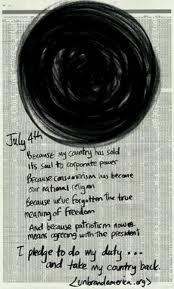 July 4th
Because my country has sold
its soul to corporate power
Because consumerism has become
our national religion
Because we've forgotten the true
meaning of freedom
And because patriotism now
means agreeing with the president
I pledge to do my duty...
and take my country back.
(unbrandamerica.org)